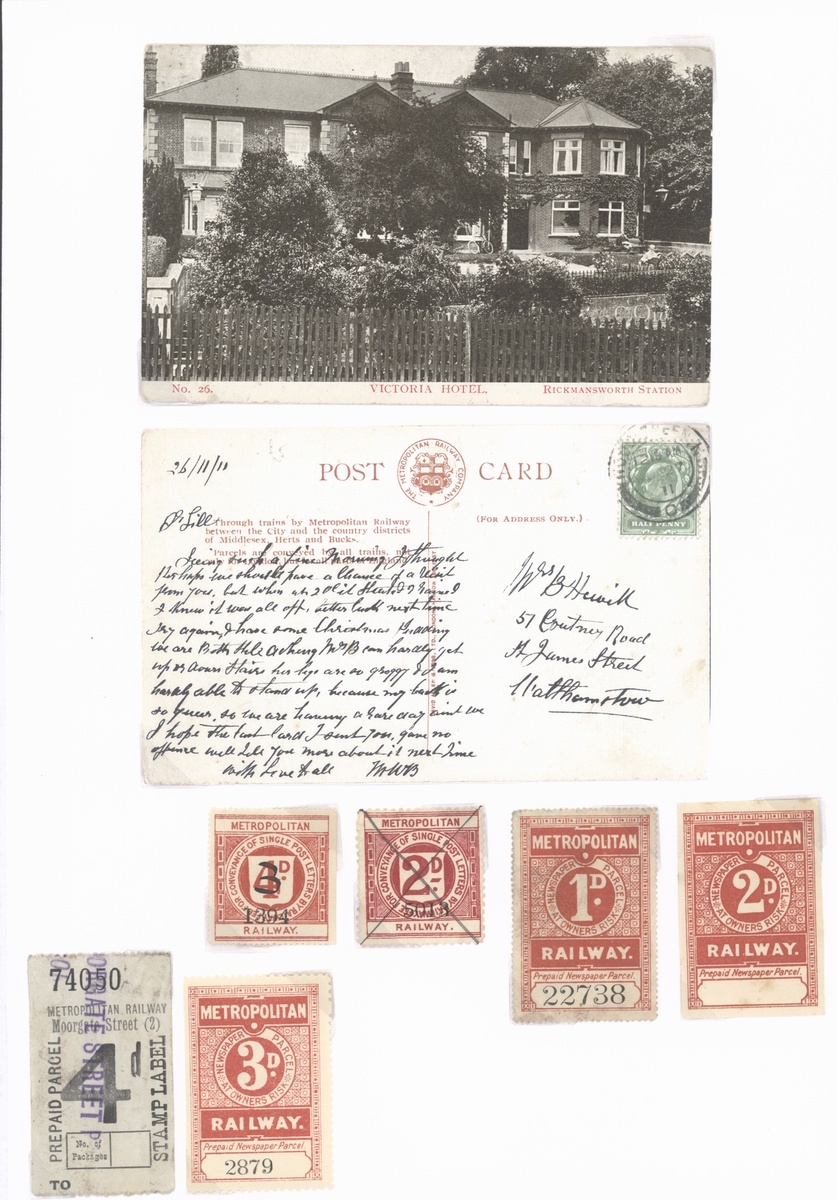 No. 26. VICTORIA HOTEL. RICKMANSWORTH STATION
26/11/11
POST CARD
THE METROPOLITAN RAILWAY COMPANY
HALF PENNY
Through trains by Metropolitan Railway
between the City and the country districts
of Middlesex, Herts and Bucks.
(FOR ADDRESS ONLY.)
Parcels are conveyed by all trains,
such a fine Morning I thought
Perhaps we should have a chance of a visit
from you, but when it Started & rained
I knew it was all off, better luck next time
try again, I have some Christmas Pudding
we are Both Mrs B can hardly get
up or down Stairs her legs are so groggy & I am
hardly able to stand up, because my back is
so queer, so we are having a day aint we
I hope the last card I sent you, gave no
offence will tell you more about it next time
with Love to all MWB
Mrs B Hewitt
51 Courtney Road
St James Street
Walthamstow
METROPOLITAN
FOR CONVEYANCE OF SINGLE POST LETTERS BY
3
D
1394
RAILWAY.
METROPOLITAN
FOR CONVEYANCE OF SINGLE POST LETTERS BY
2D
5013
RAILWAY.
METROPOLITAN
NEWSPAPER PARCEL
1D.
AT OWNERS RISK
RAILWAY.
Prepaid Newspaper Parcel.
22738
METROPOLITAN
NEWSPAPER PARCEL
2D.
AT OWNERS RISK
RAILWAY.
Prepaid Newspaper Parcel.
74050
METROPOLITAN RAILWAY
Moorgate Street (2)
PREPAID PARCEL
4d
STAMP LABEL
ORGATE STREET
No. of
Packages
TO
METROPOLITAN
NEWSPAPER PARCEL
3D.
AT OWNERS RISK
RAILWAY.
Prepaid Newspaper Parcel.
2879